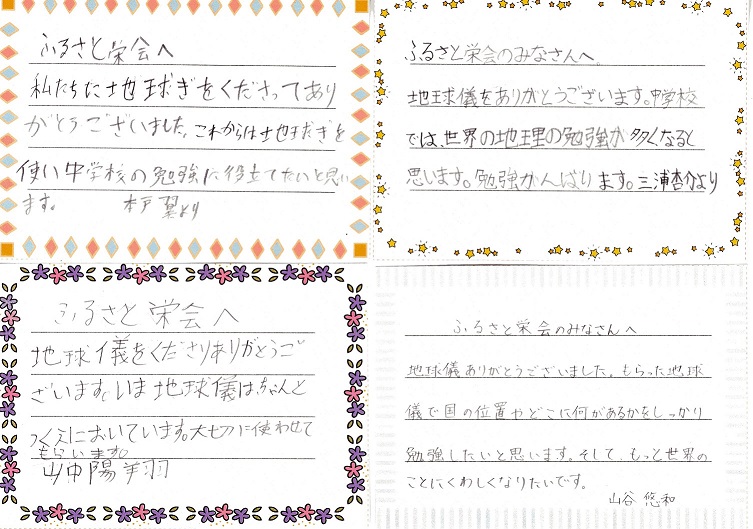 ふるさと栄会へ
私たちに地球ぎをくださってあり
がとうございました。これからは地球ぎを
使い中学校の勉強に役立てたいと思い
ます。 本戸 翼より
ふるさと栄会のみなさんへ
地球儀をありがとうございます。中学校
では、世界の地理の勉強が多くなると
思います。勉強がんばります。三浦杏介より
ふるさと栄会へ
地球儀をくださりありがとうご
ざいます。いま地球儀はちゃんと
つくえにおいています。大切に使わせて
もらいます。
山中陽美羽
ふるさと栄会のみなさんへ
地球儀ありがとうございました。もらった地球
儀で国の位置やどこに何があるかをしっかり
勉強したいと思います。そして、もっと世界の
ことにくわしくなりたいです。
山谷 悠和